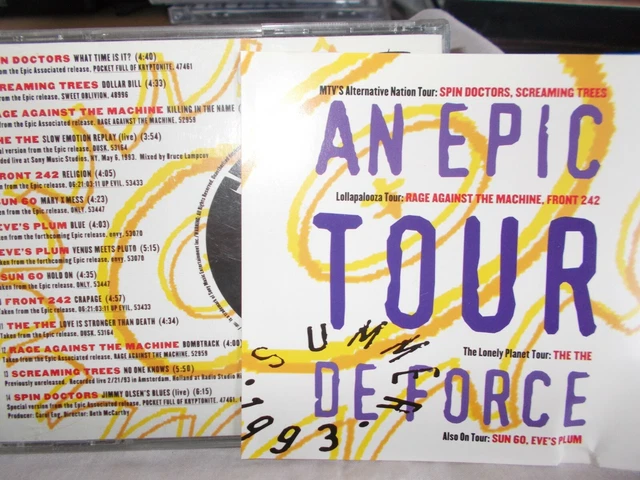 IN DOCTORS WHAT TIME IS IT? (4:40)
om the Epic Associated release, POCKET FULL OF KRYPTONITE, 47461
REAMING TREES DOLLAR BILL (4:33)
om the Epic release, SWEET OBLIVION, 48996
AGE AGAINST THE MACHINE KILLING IN THE NAME (
om the Epic Associated release, RAGE AGAINST THE MACHINE, 52959
HE THE SLOW EMOTION REPLAY (live) (3:54)
al version from the Epic release, DUSK, 53164
ded live at Sony Music Studios, NY, May 6, 1993. Mixed by Bruce Lampcov
FRONT 242 RELIGION (4:05)
ken from the Epic release, 06:21:03:11 UP EVIL, 53433
SUN 60 MARY X MESS (4:23)
en from the Epic release, ONLY, 53447
EVE'S PLUM BLUE (4:03)
aken from the forthcoming Epic release, envy, 53070
EVE'S PLUM VENUS MEETS PLUTO (5:15)
taken from the forthcoming Epic release, envy, 53070
SUN 60 HOLD ON (4:35)
Taken from the Epic release, ONLY, 53447
FRONT 242 CRAPAGE (4:57)
Taken from the Epic release, 06:21:03:11 UP EVIL, 53433
11 THE THE LOVE IS STRONGER THAN DEATH (4:34)
Taken from the Epic release, DUSK, 53164
12 RAGE AGAINST THE MACHINE BOMBTRACK (4:0
Taken from the Epic Associated release, RAGE AGAINST THE MACHINE, 52959
13 SCREAMING TREES NO ONE KNOWS (5:58)
Previously unreleased. Recorded live 2/21/93 in Amsterdam, Holland
14 SPIN DOCTORS JIMMY OLSEN'S BLUES (live) (6:15)
Special version from the Epic Associated release, POCKET FULL OF KRYPTONITE, 47461.
Producer: Carol Eng, Director: Beth McCarthy
MTV'S Alternative Nation Tour: SPIN DOCTORS, SCREAMING TREES
AN EPIC
Lollapalooza Tour: RAGE AGAINST THE MACHINE, FRONT 242
TOUR
The Lonely Planet Tour: THE THE
DE FORCE
SUMMER
.1993.
Also On Tour: SUN 60, EVE'S PLUM